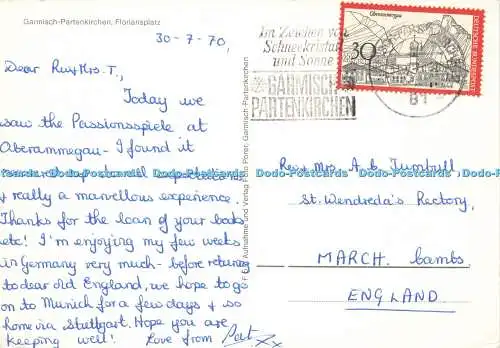 Garmisch-Partenkirchen, Floriansplatz
30-7-70,
Dear Rev & Mrs. T.,
Today we
saw the Passionsspiele at
Oberammegau - I found it
& really a marvellous experience.
Thanks for the loan of your books
etc! I'm enjoying my few weeks
in Germany very much - before returning
to dear old England, we hope to go
on to Munich for a few days & so
home via Stuttgart. Hope you are
keeping well! Love from Pat xx
Aufnahme und Verlag Foto Porer, Garmisch-Partenkirchen
Im Zeichen von
Schneekristall
und Sonne
GARMISCH
PARTENKIRCHEN
Oberammergau
30
DEUTSCHE BUNDESPOST
Rev & Mrs A. G. Turnbull
St. Wendreda's Rectory,
MARCH. Cambs.
ENGLAND
Dodo-Postcards Dodo-Postcards Dodo-Postcards Dodo-Postcards Dodo-Postcards